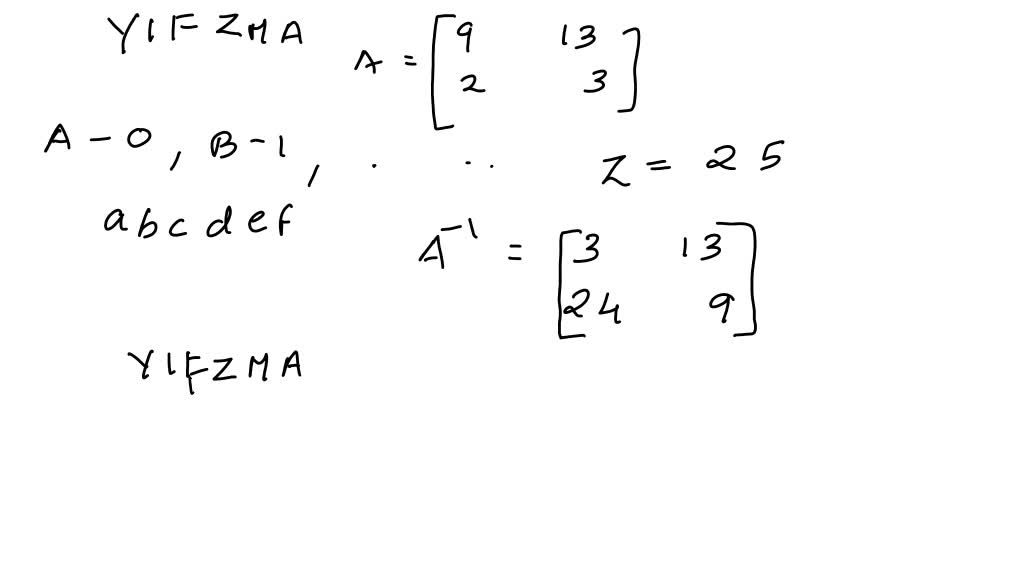 YIFZMA A = [9 13
2 3]
A - 0, B - 1, . .. Z = 25
abcdef A⁻¹ = [3 13
24 9]
YIFZMA